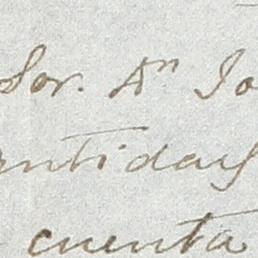 Sor. An Jo
antidad
cuenta